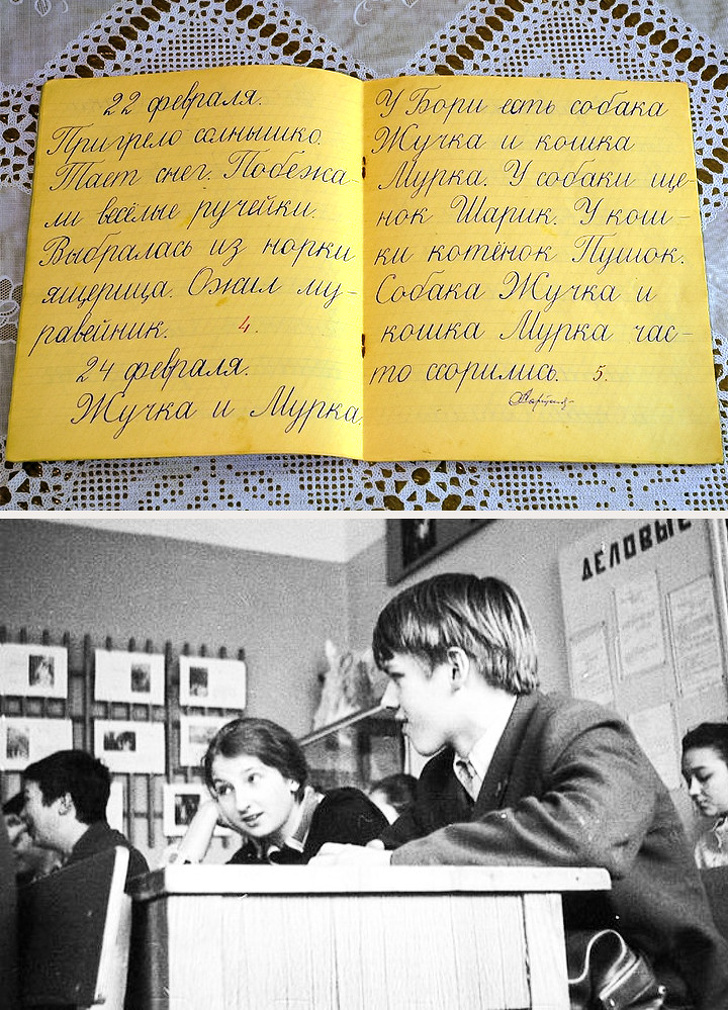 22 февраля.
Пригрело солнышко.
Тает снег. Побежа-
ли весёлые ручейки.
Выбралась из норки
ящерица. Ожил му-
равейник. 4.
24 февраля.
Жучка и Мурка.
У Бори есть собака
Жучка и кошка
Мурка. У собаки ще-
нок Шарик. У кош-
ки котёнок Пушок.
Собака Жучка и
кошка Мурка час-
то ссорились. 5.
ДЕЛОВЫЕ